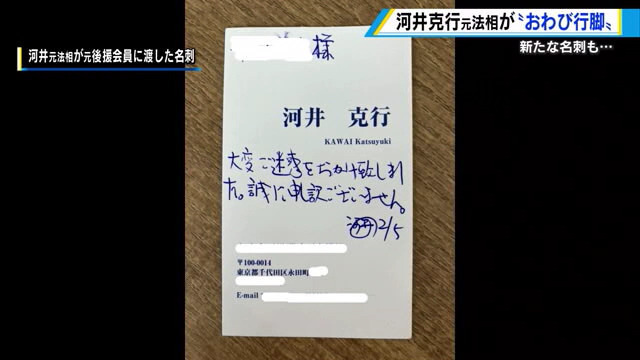 河井元法相が元後援会員に渡した名刺
河井克行元法相が〝おわび行脚〟
新たな名刺も…
様
河井 克行
KAWAI Katsuyuki
大変ご迷惑をおかけ致しまし
た。誠に申訳ございません。
河井 2/5
〒100-0014
東京都千代田区永田町
E-mail